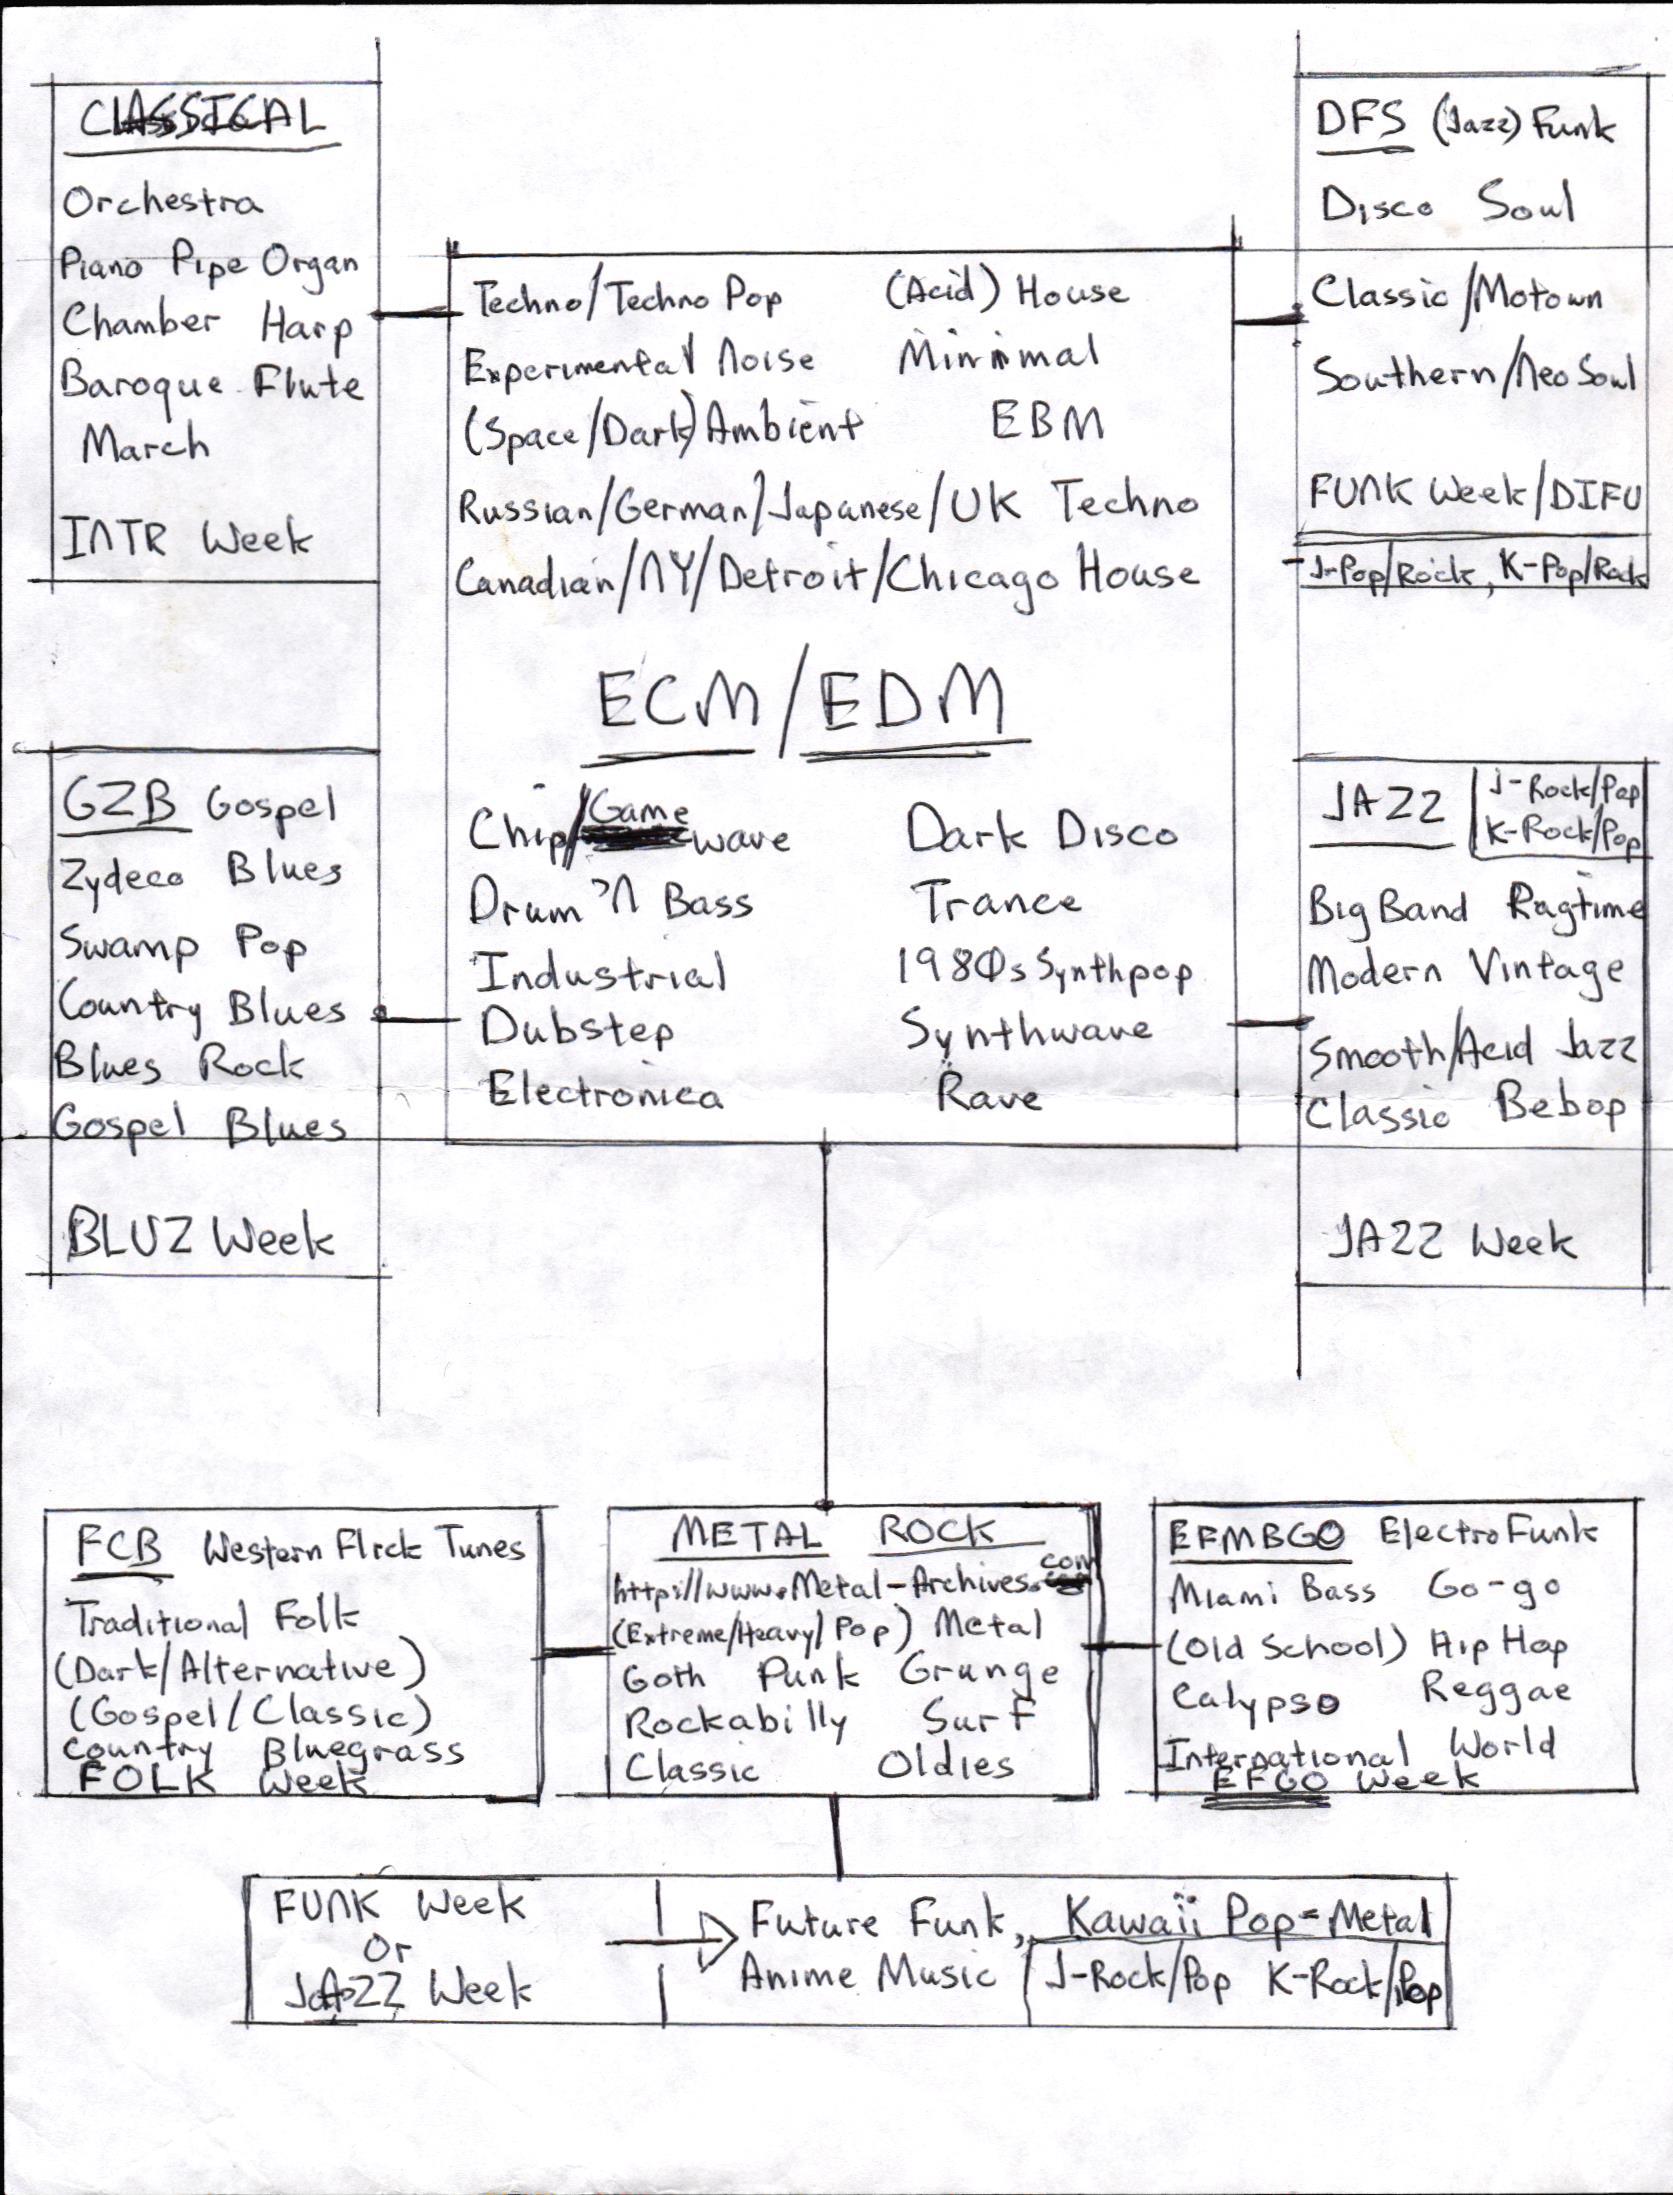 CLASSICAL
Orchestra
Piano Pipe Organ
Chamber Harp
Baroque Flute
March
INTR Week
DFS (Jazz) Funk
Disco Soul
Classic/Motown
Southern/Neo Soul
FUNK Week/DIFU
J-Pop/Rock, K-Pop/Rock
Techno/Techno Pop (Acid) House
Experimental Noise Minimal
(Space/Dark) Ambient EBM
Russian/German/Japanese/UK Techno
Canadian/NY/Detroit/Chicago House
ECM/EDM
Chip/Game wave Dark Disco
Drum 'N Bass Trance
Industrial 1980s Synthpop
Dubstep Synthwave
Electronica Rave
GZB Gospel
Zydeco Blues
Swamp Pop
Country Blues
Blues Rock
Gospel Blues
BLUZ Week
JAZZ
J-Rock/Pop
K-Rock/Pop
Big Band Ragtime
Modern Vintage
Smooth/Acid Jazz
Classic Bebop
JAZZ Week
FCB Western Flick Tunes
Traditional Folk
(Dark/Alternative)
(Gospel/Classic)
Country Bluegrass
FOLK Week
METAL ROCK
http://www.Metal-Archives.com
(Extreme/Heavy/Pop) Metal
Goth Punk Grunge
Rockabilly Surf
Classic Oldies
EFMBGO ElectroFunk
Miami Bass Go-go
(Old School) Hip Hop
Calypso Reggae
International World
EFGO Week
FUNK Week
Or
JAZZ Week
Future Funk, Kawaii Pop=Metal
Anime Music J-Rock/Pop K-Rock/Pop